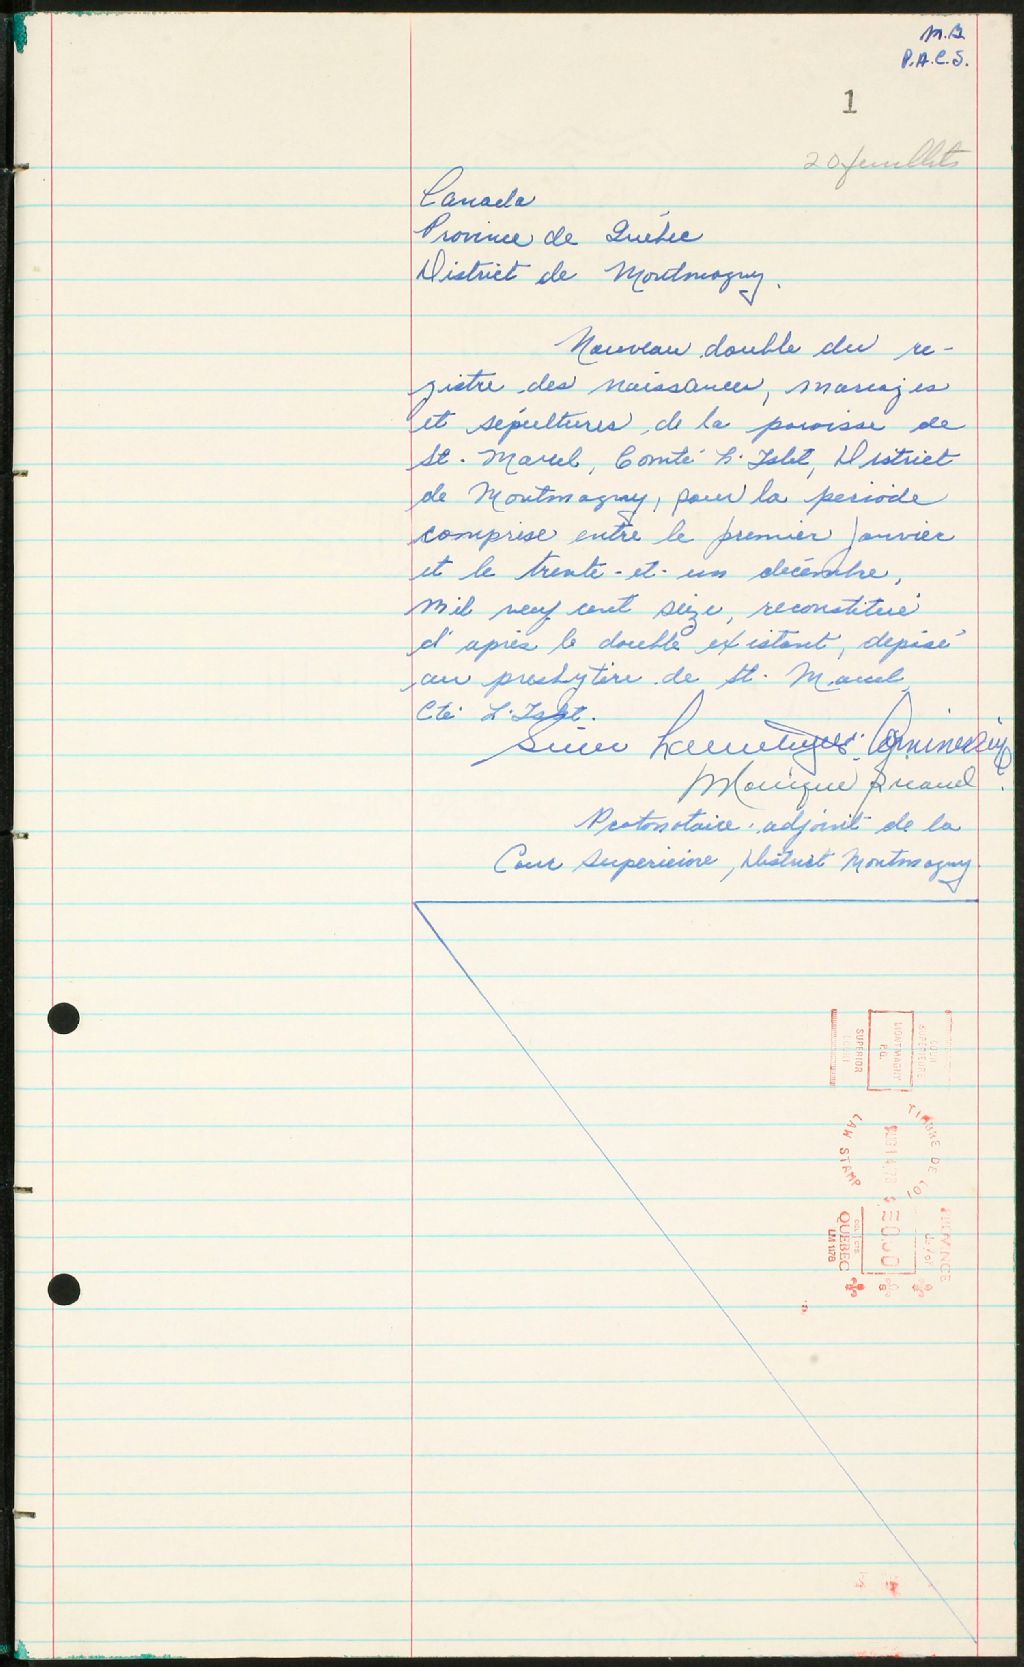 M.G.
P.A.C.S.
1
20 feuillets
Canada
Province de Québec
District de Montmagny.
Nouveau double du re-
gistre des naissances, mariages
et sépultures, de la paroisse de
St. Marcel, Comté L'Islet, District
de Montmagny, pour la période
comprise entre le premier janvier
et le trente-et-un décembre,
mil neuf cent seize, reconstitué
d'après le double existant, déposé
au presbytère de St. Marcel,
Cté L'Islet.
Monique
Protonotaire-adjoint de la
Cour Supérieure, District Montmagny.
COUR
SUPERIEURE
MONTMAGNY
P.Q.
SUPERIOR
COURT
TIMBRE DE LOI
LAW STAMP
QUEBEC